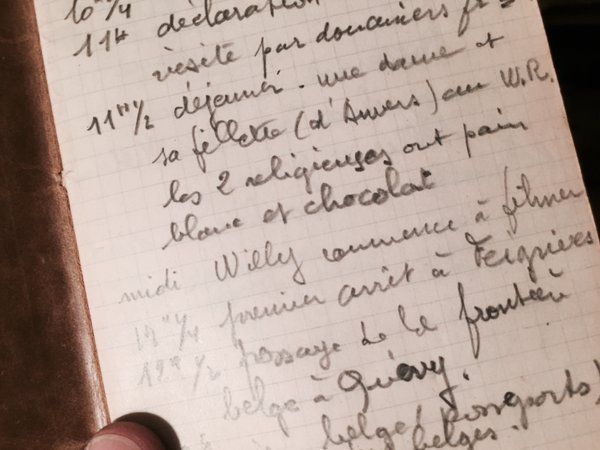 10 ʰ 1/4
11ʰ déclaration
visite par douaniers
11ʰ 1/2 déjeuner. une dame et
sa fillette (d'Anvers) au W.R.
les 2 religieuses ont pain
blanc et chocolat
midi Willy commence à filmer
12ʰ 1/4 premier arrêt à Feignières
12ʰ 1/2 passage de la frontière
belge à Quévy.
belge (passeports)
belges.